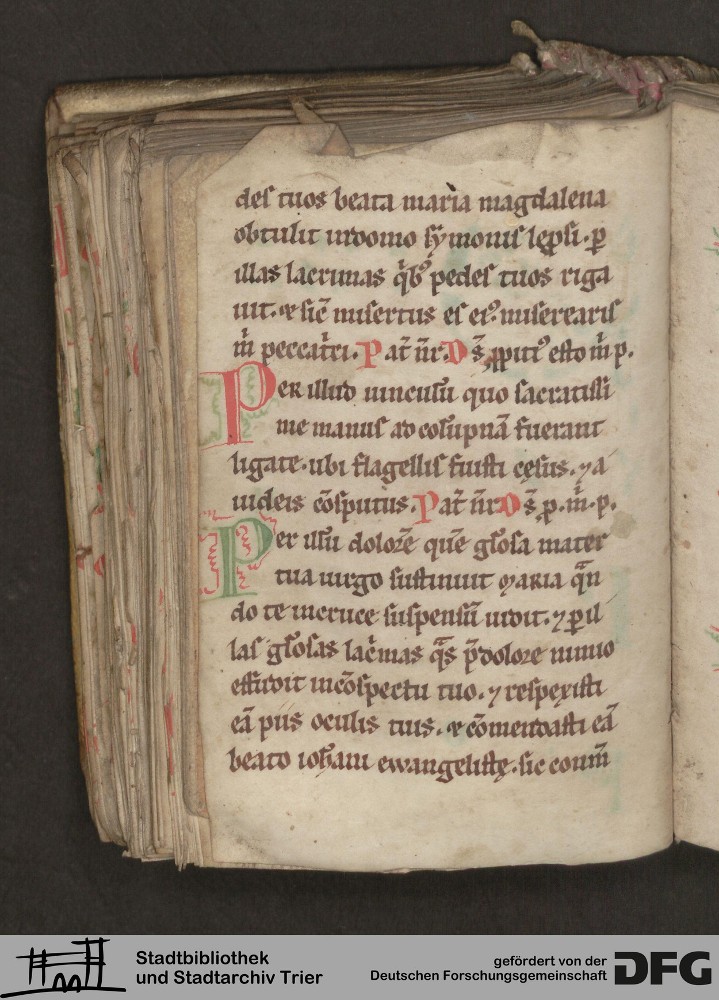 des tuos beata maria magdalena
obtulit indomo sẏmonis lep̱si. ꝑ
illas lacrimas q̇bꝰ pedes tuos riga
uit. ⁊ sic̄ misertus es eiꝰ. miserearis
m̓ peccat̓ci. Pat̄ nr̄. D s̄ ꝓpitꝰ esto m̓ p.
Per illud uinculū quo sacratissi
me manus ad colūpnā fuerant
ligate. ubi flagellis fuisti cęsus. ⁊ a
iudeis cōsputus. Pat̄ nr̄ D s̄ ꝓ. m̓. p.
Per illū dolorē quē glōsa mater
tua uirgo sustinuit maria qᷓn
do te incruce suspensū uidit. ⁊ ꝑ il
las glōsas lac̓mas qᷓs p̄dolore nimio
effudit incōspectu tuo. ⁊ respexisti
eā piis oculis tuis. ⁊ cōmendasti eā
beato ioħani ewangelistę. sic eoum̄
Stadtbibliothek
und Stadtarchiv Trier
gefördert von der
Deutschen Forschungsgemeinschaft
DFG